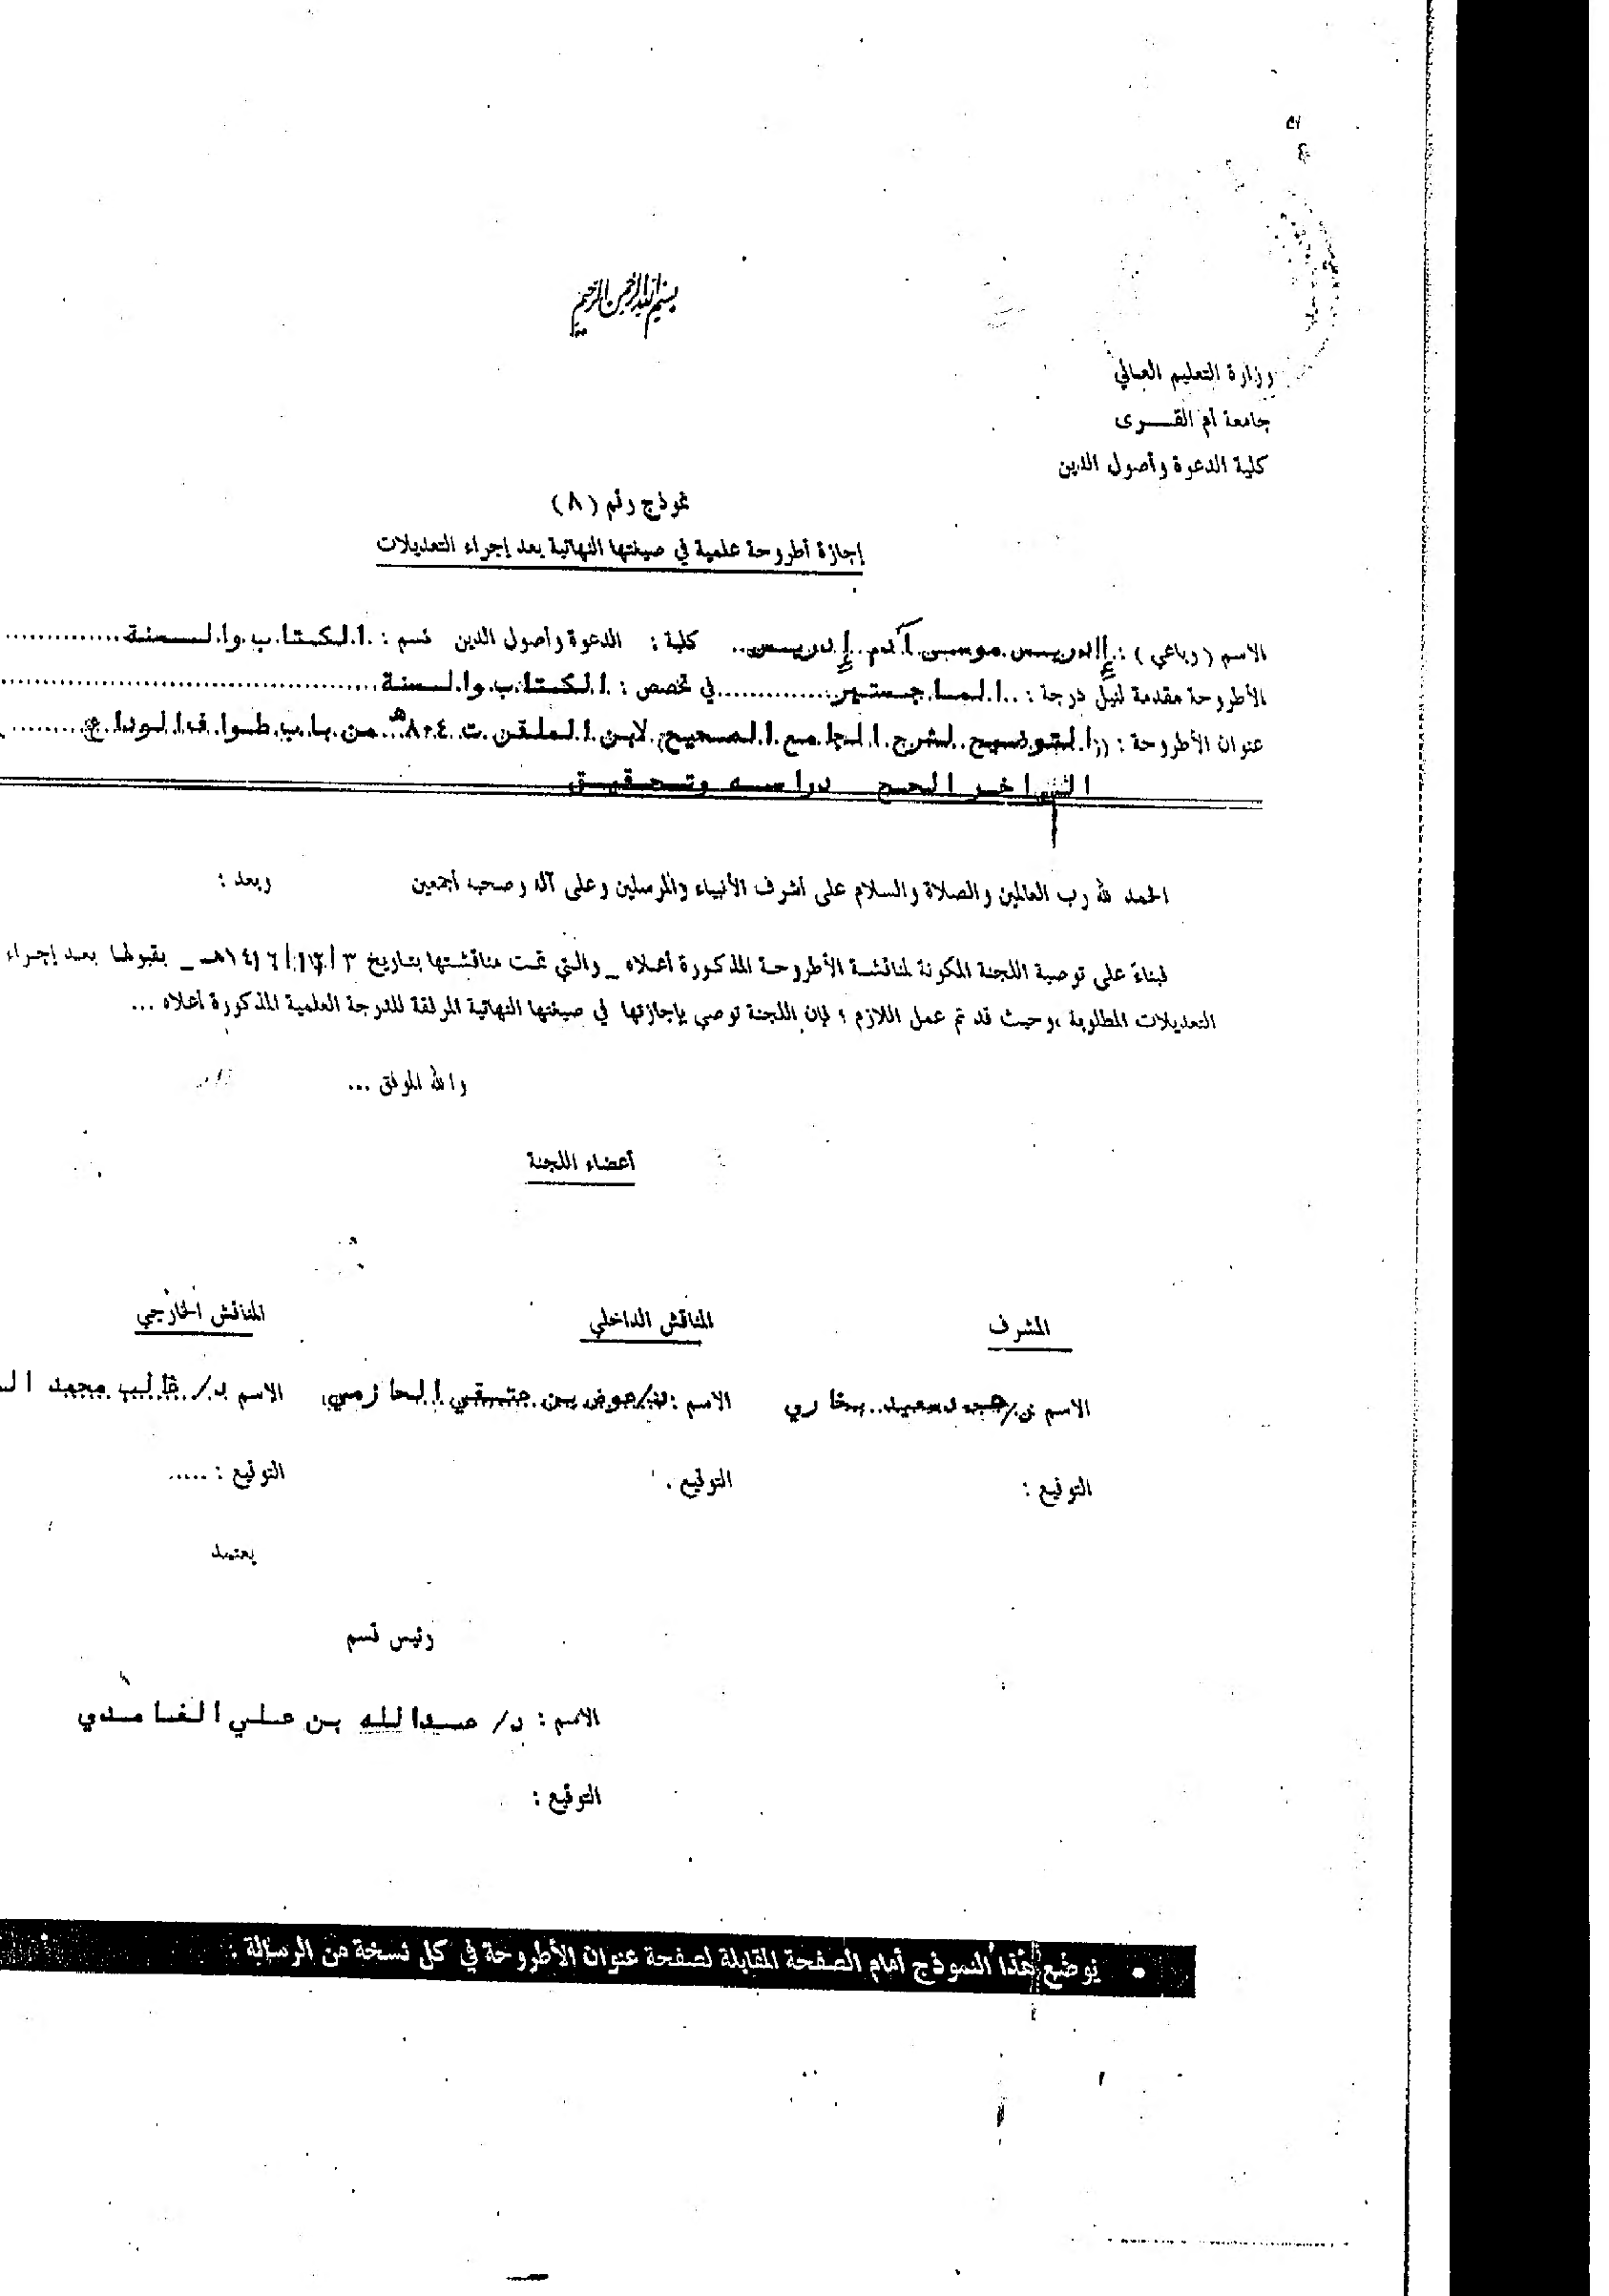 بسم الله الرحمن الرحيم
وزارة التعليم العالي
جامعة أم القـــرى
كلية الدعوة وأصول الدين
نموذج رقم ( ٨ )
إجازة أطروحة علمية في صيغتها النهائية بعد إجراء التعديلات
الاسم ( رباعي ) : إدريس موسى آدم إدريس .. كلية : الدعوة وأصول الدين قسم : .الكتاب والسنة..............
الأطروحة مقدمة لنيل درجة : ..الماجستير............ في تخصص : .الكتاب والسنة..............
عنوان الأطروحة : (( التوضيح لشرح الجامع الصحيح لابن الملقن ت ٨٠٤هـ من باب طواف الوداع .........
الى آخر الحج دراسة وتحقيق
الحمد لله رب العالمين والصلاة والسلام على أشرف الأنبياء والمرسلين وعلى آله وصحبه أجمعين وبعد :
فبناءً على توصية اللجنة المكونة لمناقشة الأطروحة المذكورة أعلاه _ والتي تمت مناقشتها بتاريخ ٣ / / ١٤١٦هـ _ بقبولها بعد إجراء
التعديلات المطلوبة ، وحيث قد تم عمل اللازم ؛ فإن اللجنة توصي بإجازتها في صيغتها النهائية المرفقة للدرجة العلمية المذكورة أعلاه ...
والله الموفق ...
أعضاء اللجنة
المشرف المناقش الداخلي المناقش الخارجي
الاسم سعيد بخاري الاسم : د/عوض بن عتقي الحازمي الاسم د/ غالب محمد
التوقيع : التوقيع . التوقيع : .....
يعتمد
رئيس قسم
الاسم : د/ عبدالله بن علي الغامدي
التوقيع :
• يوضع هذا النموذج أمام الصفحة المقابلة لصفحة عنوان الأطروحة في كل نسخة من الرسالة .